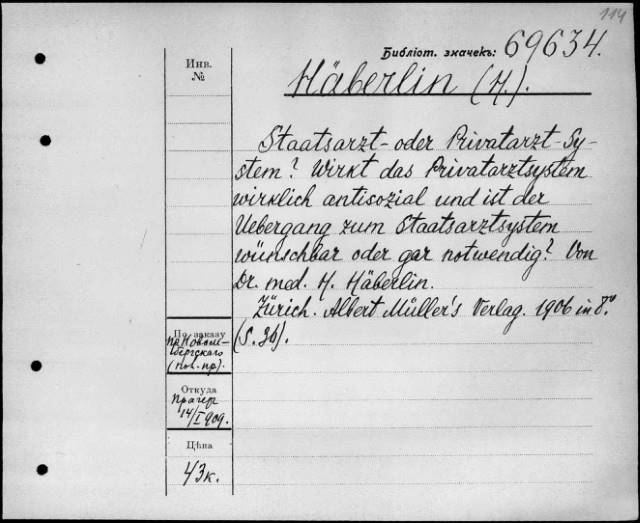 114
Библіот. значекъ: 69634.
Инв.
№
Häberlin (H.).
Staatsarzt- oder Privatarzt-Sy-
stem? Wirkt das Privatarztsystem
wirklich antisozial und ist der
Uebergang zum Staatsarztsystem
wünschbar oder gar notwendig? Von
Dr. med. H. Häberlin.
Zürich. Albert Müller's Verlag. 1906 in 8°.
(S. 36).
По заказу
пр. Новом-
бергскаго
Откуда
Прагер
14/I 909.
Цѣна
43к.